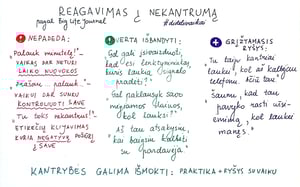 REAGAVIMAS Į NEKANTRUMĄ
pagal Big Life Journal
#didelivaikai
NEPADEDA:
„Palauk minutėlę!“ -
VAIKAS DAR NETURI
LAIKO NUOVOKOS
„Prašau... palauk.“ -
VAIKUI DAR SUNKU
KONTROLIUOTI SAVE
„Tu toks nekantrus!“ -
ETIKEČIŲ KLIJAVIMAS
KURIA NEGATYVŲ POŽIŪRĮ
Į SAVE
VERTA IŠBANDYTI:
„Gal gali įsivaizduoti,
kad esi lenktynininkas,
kuris laukia signalo
pradėti?“
„Gal paklausyk savo
mėgiamos dainos,
kol lauksi?“
„Aš tau atsakysiu,
kai baigsiu kalbėti
su pardavėja.“
GRĮŽTAMASIS
RYŠYS:
„Tu taip kantriai
laukei, kol aš kalbėjau
telefonu. Ačiū tau.“
„Šaunu, kad tau
pavyko rasti užsi-
ėmimą, kol laukei
manęs.“
KANTRYBĖS GALIMA IŠMOKTI: PRAKTIKA + RYŠYS SU VAIKU